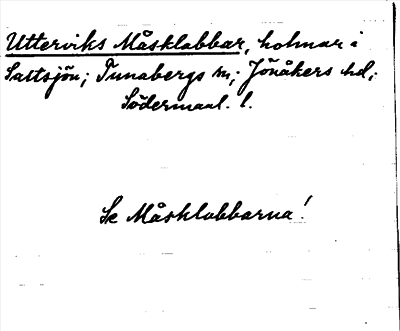 Utterviks Måsklabbar, holmar i
Saltsjön; Tunabergs sn; Jönåkers hd;
Södermanl. l.
Se Måsklabbarna!